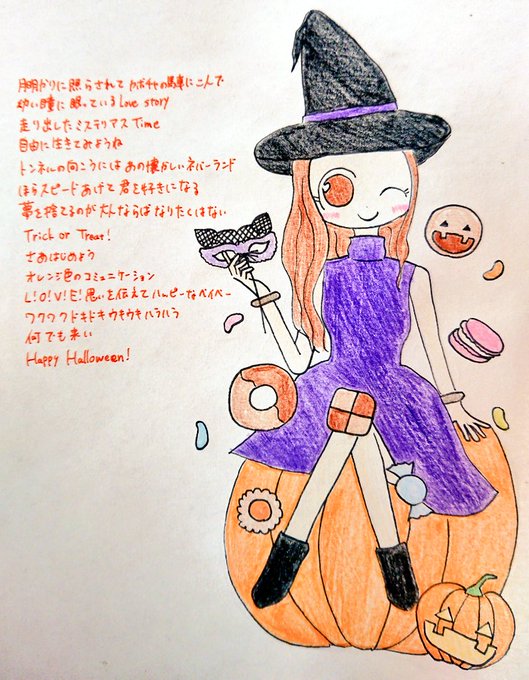 月明かりに照らされて カボチャの馬車に二人で
幼い瞳に眠っている Love story
走り出したミステリアス Time
自由に生きてみようね
トンネルの向こうには あの懐かしいネバーランド
ほらスピードあげて 君を好きになる
夢を捨てるのが大人ならば なりたくはない
Trick or Treat!
さあはじめよう
オレンジ色のコミュニケーション
L!O!V!E!思いを伝えて ハッピーなベイベー
ワクワクドキドキウキウキハラハラ
何でも来い
Happy Halloween!